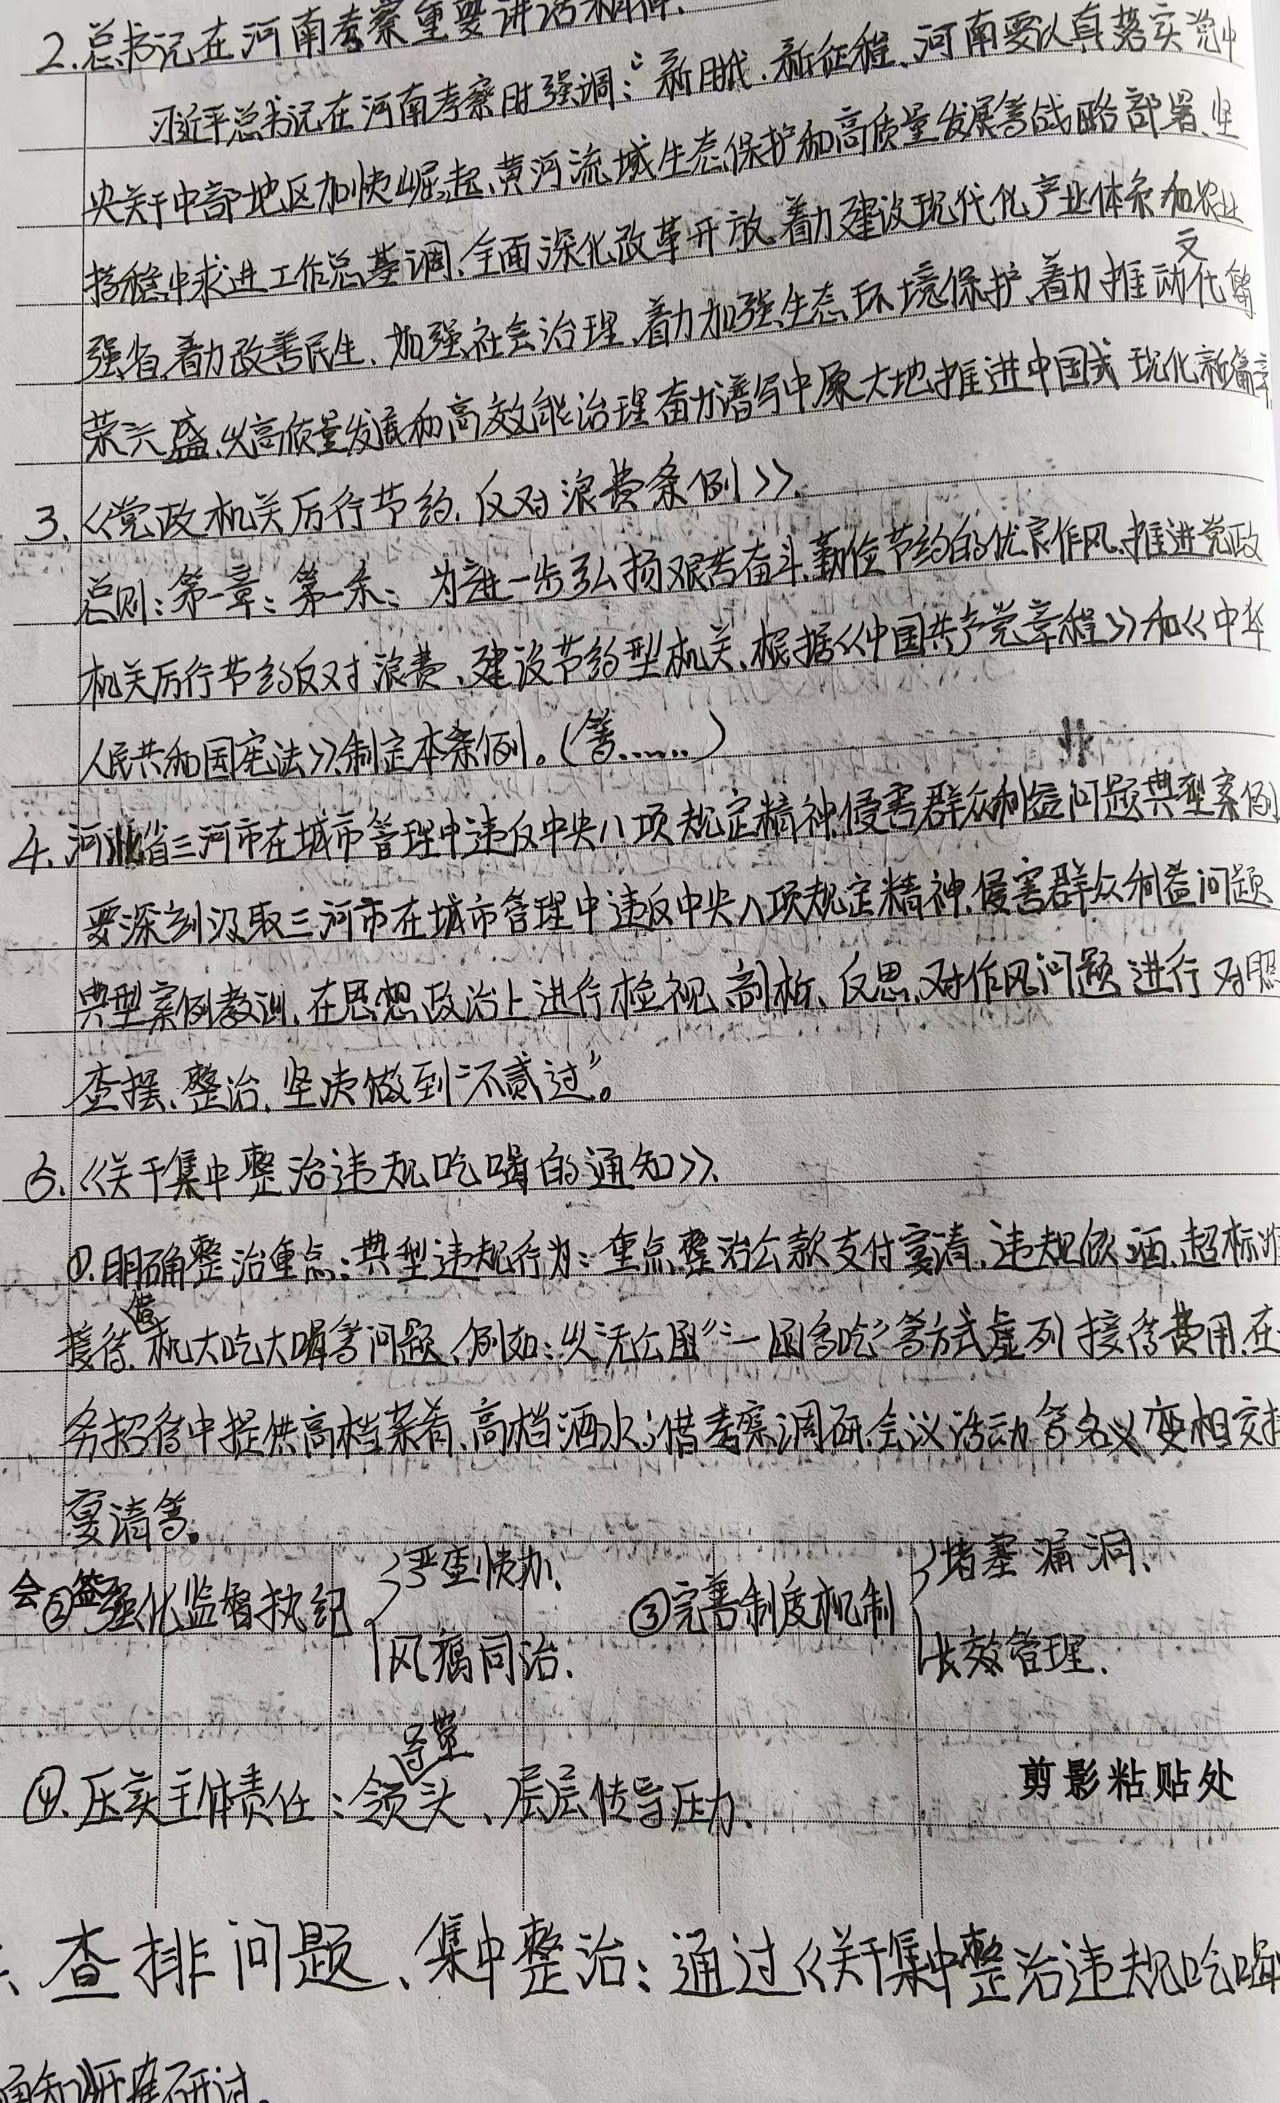 2.总书记在河南考察重要讲话精神.
习近平总书记在河南考察时强调:“新时代、新征程、河南要认真落实党中
央关于中部地区加快崛起、黄河流域生态保护和高质量发展等战略部署、坚
持稳中求进工作总基调、全面深化改革开放、着力建设现代化产业体系和农业
强省、着力改善民生、加强社会治理、着力加强生态环境保护、着力推动文化繁
荣兴盛、以高质量发展和高效能治理奋力谱写中原大地推进中国式现化新篇章.
3.《党政机关厉行节约、反对浪费条例》.
总则:第一章:第一条:为进一步弘扬艰苦奋斗、勤俭节约的优良作风、推进党政
机关厉行节约反对浪费、建设节约型机关、根据《中国共产党章程》和《中华
人民共和国宪法》制定本条例。(等......)
北
4.河北省三河市在城市管理中违反中央八项规定精神、侵害群众利益问题典型案例
要深刻汲取三河市在城市管理中违反中央八项规定精神、侵害群众利益问题
典型案例教训、在思想政治上进行检视、剖析、反思、对作风问题进行对照
查摆、整治、坚决做到“不贰过”。
5.《关于集中整治违规吃喝的通知》.
①.明确整治重点:典型违规行为:重点整治公款支付宴请、违规饮酒、超标准
接待、借机大吃大喝等问题、例如:以无公函“一函多吃”等方式虚列接待费用、在
务招待中提供高档菜肴、高档酒水;借考察调研、会议活动等名义变相安排
宴请等.
会签
②强化监督执纪 严查快办.
风腐同治.
③完善制度机制 堵塞漏洞.
长效管理.
④.压实主体责任:领导带头、层层传导压力.
剪影粘贴处
、查排问题、集中整治:通过《关于集中整治违规吃喝
通知》开展研讨.